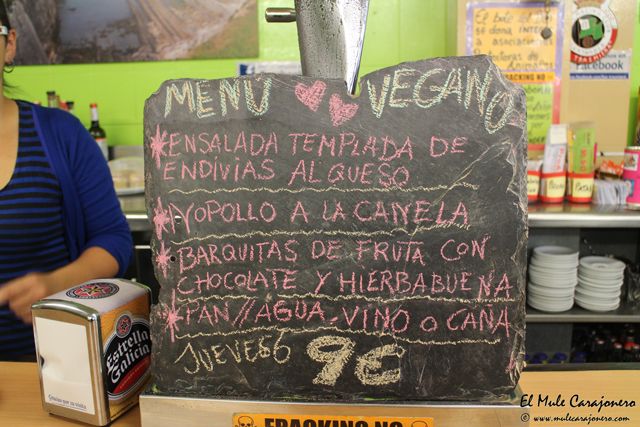 MENU VEGANO
* ENSALADA TEMPLADA DE
ENDIVIAS AL QUESO
* AYOPOLLO A LA CANELA
* BARQUITAS DE FRUTA CON
CHOCOLATE Y HIERBABUENA
* PAN // AGUA - VINO O CAÑA
JUEVES 6 9€
Estrella
Galicia
Gracias por su visita
FRACKING NO
FRACKING NO
Facebook
El Mule Carajonero
© www.mulecarajonero.com